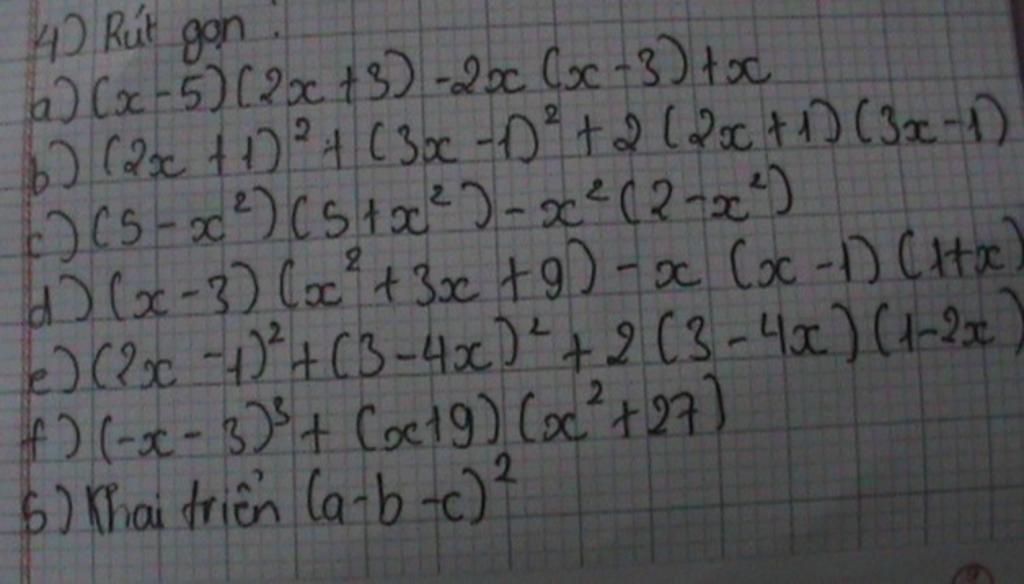 4) Rút gọn :
a) (x-5)(2x+3)-2x(x-3)+x
b) (2x+1)²+(3x-1)²+2(2x+1)(3x-1)
c) (5-x²)(5+x²)-x²(2-x²)
d) (x-3)(x²+3x+9)-x(x-1)(1+x)
e) (2x-1)²+(3-4x)²+2(3-4x)(1-2x)
f) (-x-3)³+(x+9)(x²+27)
5) Khai triển (a-b-c)²